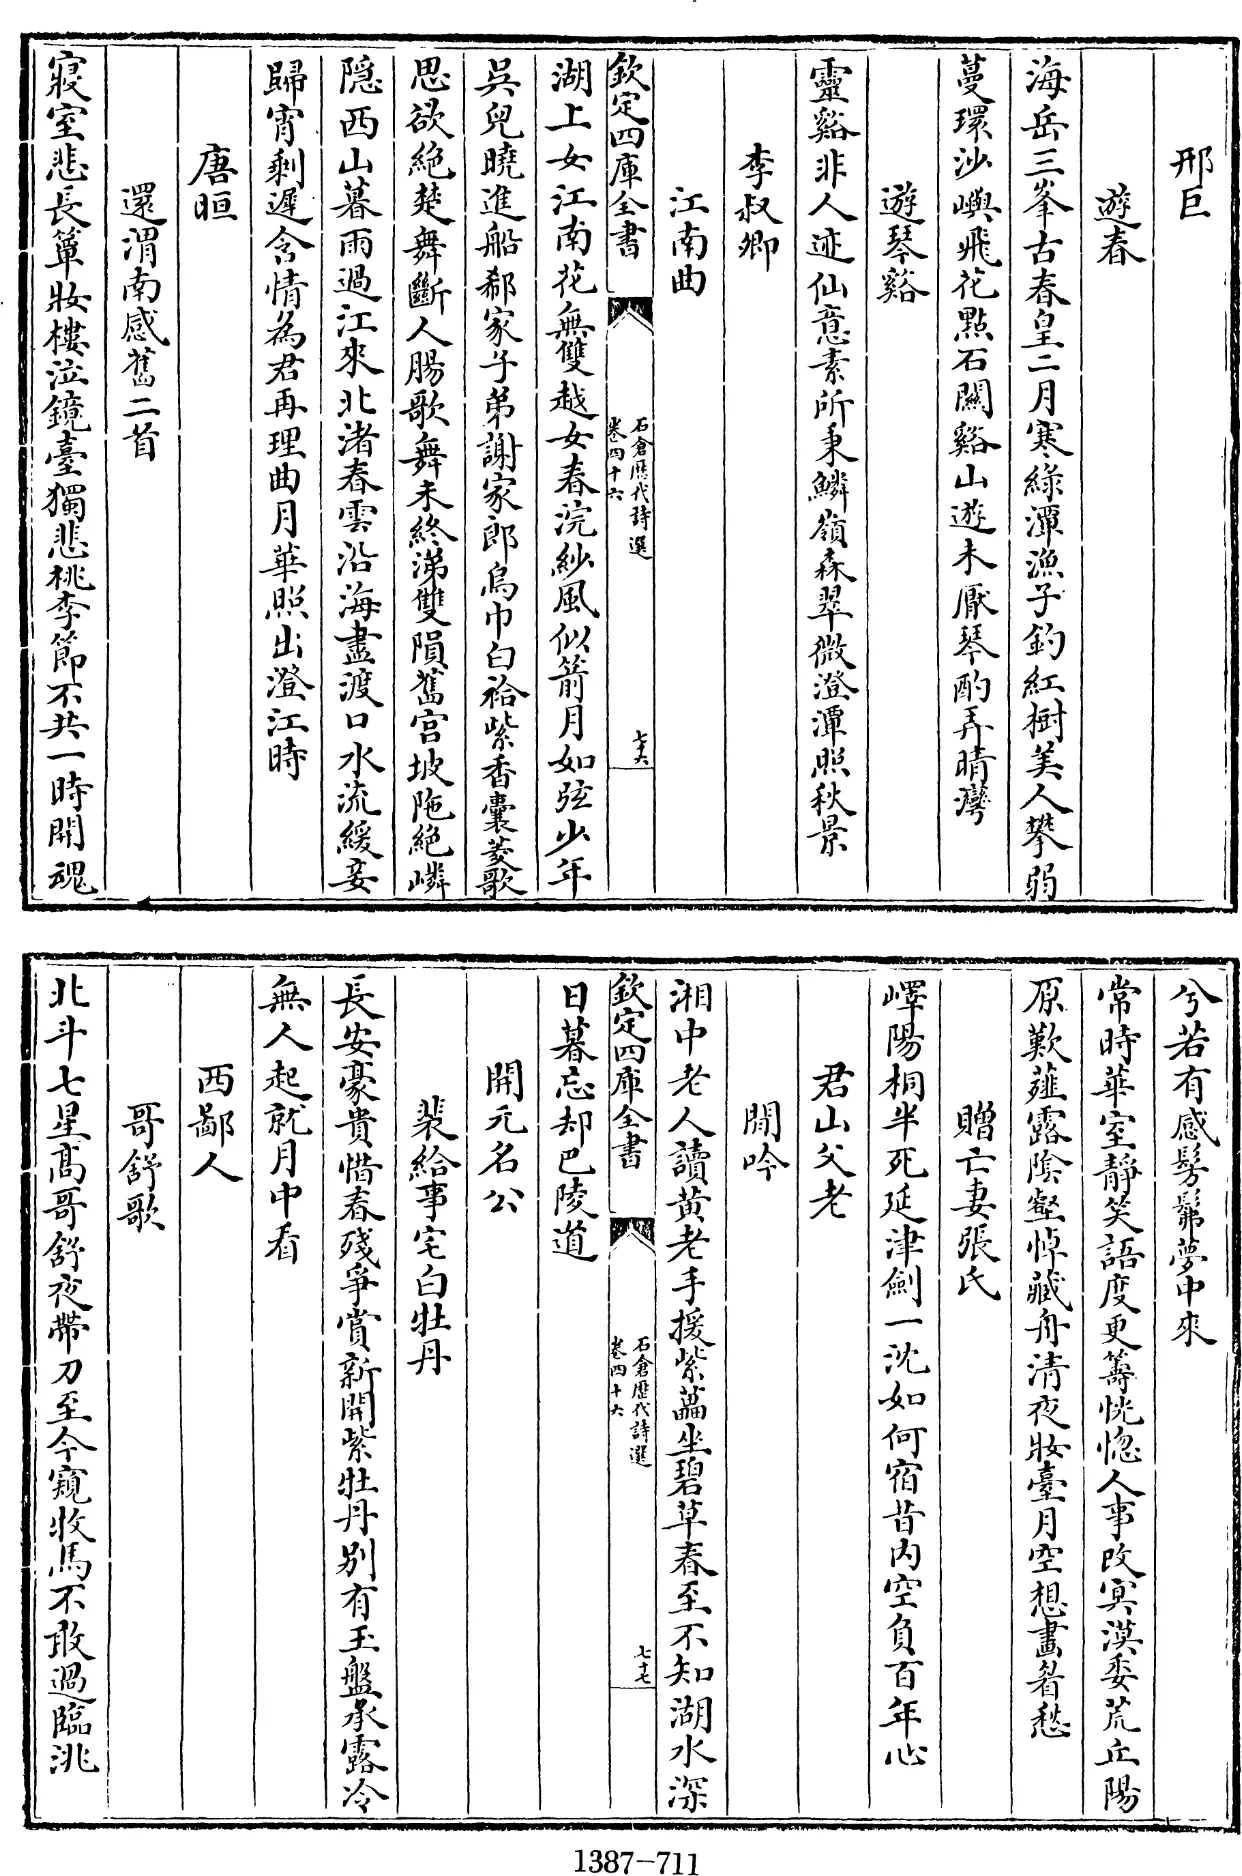 邢巨
遊春
海岳三峯古春皇二月寒綠潭漁子釣紅樹美人攀弱
蔓環沙嶼飛花點石關谿山遊未厭琴酌弄晴灣
遊琴谿
靈谿非人迹仙意素所秉鱗嶺森翠微澄潭照秋景
李叔卿
江南曲
欽定四庫全書
石倉歷代詩選
卷四十六
七十六
湖上女江南花無雙越女春浣紗風似箭月如弦少年
吳兒曉進船郗家子弟謝家郎烏巾白袷紫香囊菱歌
思欲絶楚舞斷人腸歌舞未終涕雙隕舊宮坡陁絶嶙
隱西山暮雨過江來北渚春雲沿海盡渡口水流緩妾
歸宵剩遲含情為君再理曲月華照出澄江時
唐晅
還渭南感舊二首
寢室悲長簟妝樓泣鏡臺獨悲桃李節不共一時開魂
兮若有感髣髴夢中來
常時華室靜笑語度更籌恍惚人事改冥漠委荒丘陽
原歎薤露陰壑悼藏舟清夜妝臺月空想畫眉愁
贈亡妻張氏
嶧陽桐半死延津劍一沈如何宿昔内空負百年心
君山父老
閒吟
湘中老人讀黃老手援紫藟坐碧草春至不知湖水深
欽定四庫全書
石倉歷代詩選
卷四十六
七十七
日暮忘却巴陵道
開元名公
裴給事宅白牡丹
長安豪貴惜春殘爭賞新開紫牡丹别有玉盤承露冷
無人起就月中看
西鄙人
哥舒歌
北斗七星高哥舒夜帶刀至今窺牧馬不敢過臨洮
1387-711